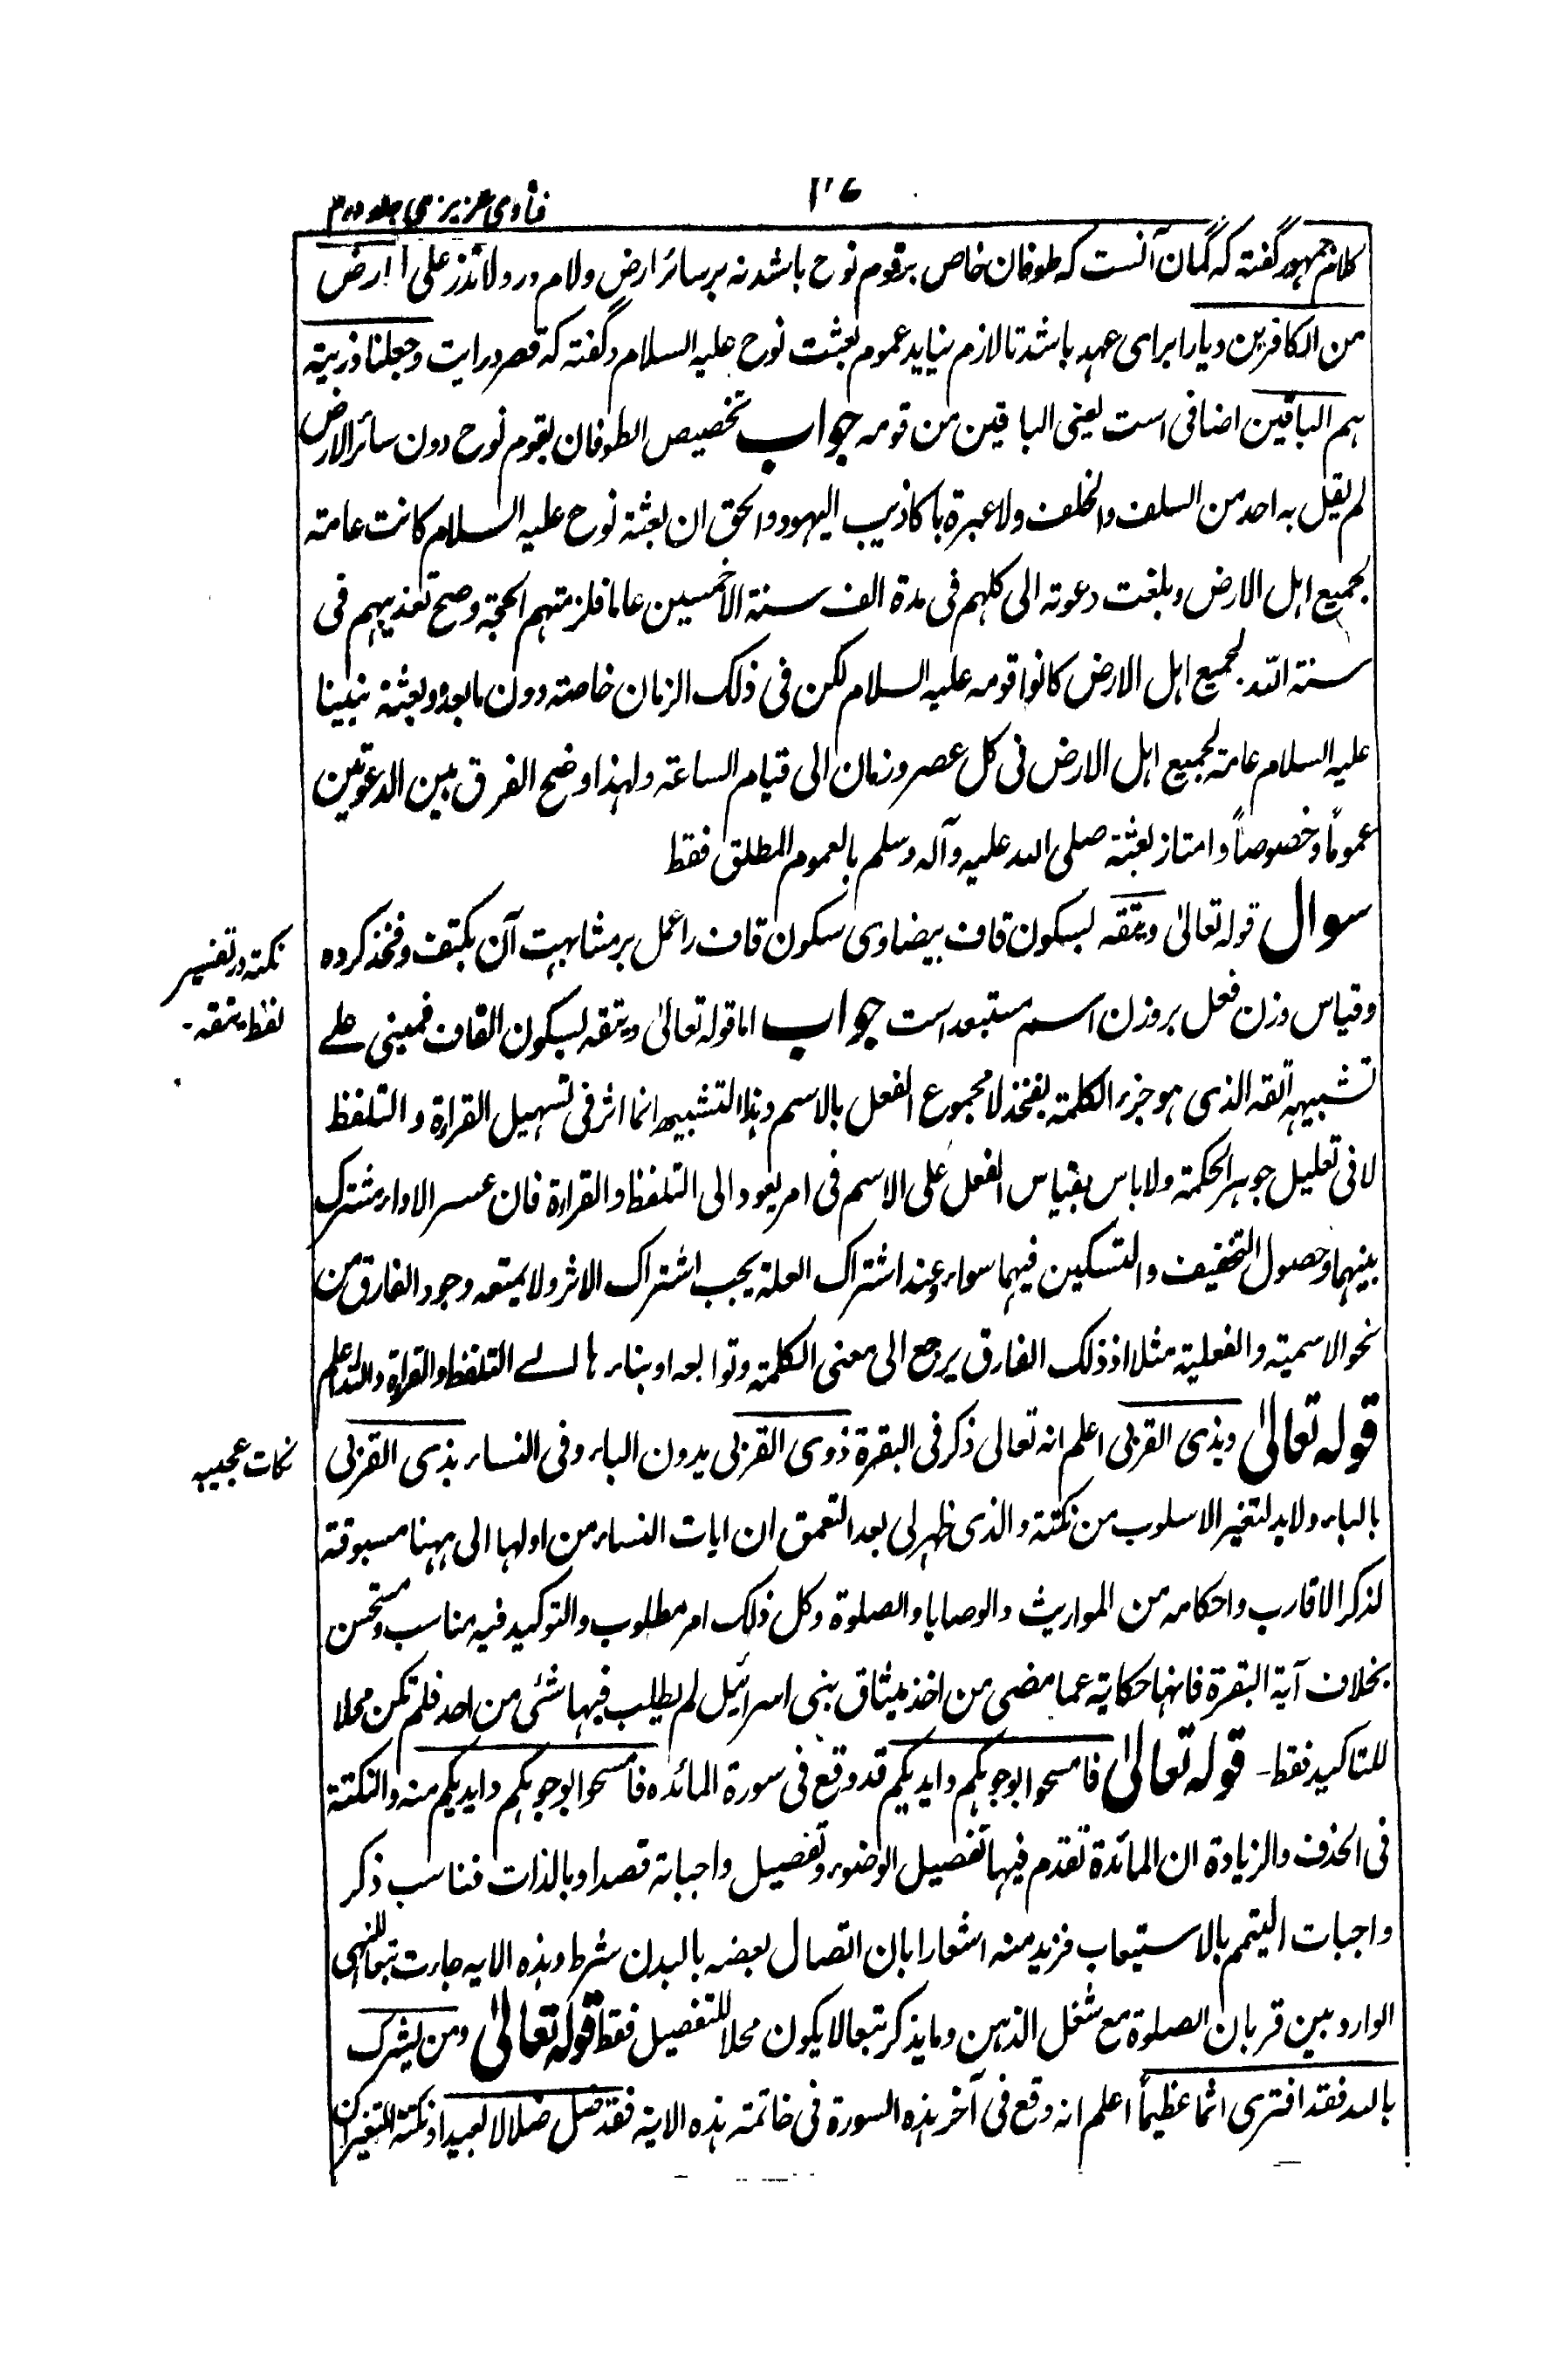 فتاوی عزیزی جلد دوم
کلام جمهور گفته که گمان آنست که طوفان خاص بر قوم نوح باشد نه بر سائر ارض ولام در ولا تذر علی الارض
من الکافرین دیارا برای عهد باشد تا لازم نیاید عموم بعثت نوح علیه السلام و گفته که قصر در ایت وجعلنا ذریته
هم الباقین اضافی است یعنی الباقین من قومه جواب تخصیص الطوفان بقوم نوح دون سائر الارض
لم یقل به احد من السلف والخلف ولا عبرة باکاذیب الیهود والحق ان بعثة نوح علیه السلام کانت عامة
لجمیع اهل الارض وبلغت دعوته الی کلهم فی مدة الف سنة الا خمسین عاما فلزمتهم الحجة وصح تعذیبهم فی
سنة الله لجمیع اهل الارض کانوا قومه علیه السلام لکن فی ذلک الزمان خاصة دون ما بعده وبعثة نبینا
علیه السلام عامة لجمیع اهل الارض فی کل عصر وزمان الی قیام الساعة ولهذا وضح الفرق بین الدعوتین
عموماً وخصوصاً وامتاز بعثته صلی الله علیه وآله وسلم بالعموم المطلق فقط
سوال قوله تعالیٰ ویتقه بسکون قاف بیضاوی سکون قاف را عمل بر مشابهت آن بکتف وفخذ کرده
نکته در تفسیر
لفظ یتقه ۔
وقیاس وزن فعل بر وزن اسم مستبعد است جواب اما قوله تعالیٰ ویتقه بسکون القاف فمبنی علے
تشبیهه تقه الذی هو جزء الکلمة بفخذ لا مجموع الفعل بالاسم وهذا التشبیه انما اثر فی تسهیل القراءة والتلفظ
لا فی تعلیل جوهر الحکمة ولا باس بقیاس الفعل علی الاسم فی امر یعود الی التلفظ والقراءة فان عسر الاداء مشترک
بینهما وحصول التخفیف والتسکین فیهما سواء وعند اشتراک العلة یجب اشتراک الاثر ولا یمنعه وجود الفارق من
نحو الاسمیة والفعلیة مثلا اذ ذلک الفارق یرجع الی معنی الکلمة وتوابعه او بناءها لے التلفظ والقراءة والله اعلم
قوله تعالیٰ وبذی القربی اعلم انه تعالی ذکر فی البقرة ذوی القربی بدون الباء وفی النساء بذی القربی
نکات عجیبه
بالباء ولابد لتغیر الاسلوب من نکتة والذی ظهر لی بعد التعمق ان ایات النساء من اولها الی ههنا مسبوقة
لذکر الاقارب واحکامه من المواریث والوصایا والصلوة وکل ذلک امر مطلوب والتوکید فیه مناسب ومستحسن
بخلاف آیة البقرة فانها حکایة عما مضی من اخذ میثاق بنی اسرائیل لم یطلب فیها شئی من احد فلم تکن محلا
للتاکید فقط ۔ قوله تعالیٰ فامسحوا بوجوهکم وایدیکم قد وقع فی سورة المائده فامسحوا بوجوهکم وایدیکم منه والنکتة
فی الحذف والزیادة ان المائدة تقدم فیها تفصیل الوضوء وتفصیل واجباته قصدا وبالذات فناسب ذکر
واجبات التیمم بالاستیعاب فزید منه اشعارا بان اتصال بعضه بالبدن شرط وهذه الایه جاءت تبعا للنهی
الوارد بین قربان الصلوة مع شغل الذهن وما یذکر تبعا لا یکون محلا للتفصیل فقط قوله تعالیٰ ومن یشرک
بالله فقد افتری اثما عظیماً اعلم انه وقع فی آخر هذه السورة فی خاتمة هذه الایة فقد ضل ضلالا بعیدا ونکتة التغیر ان